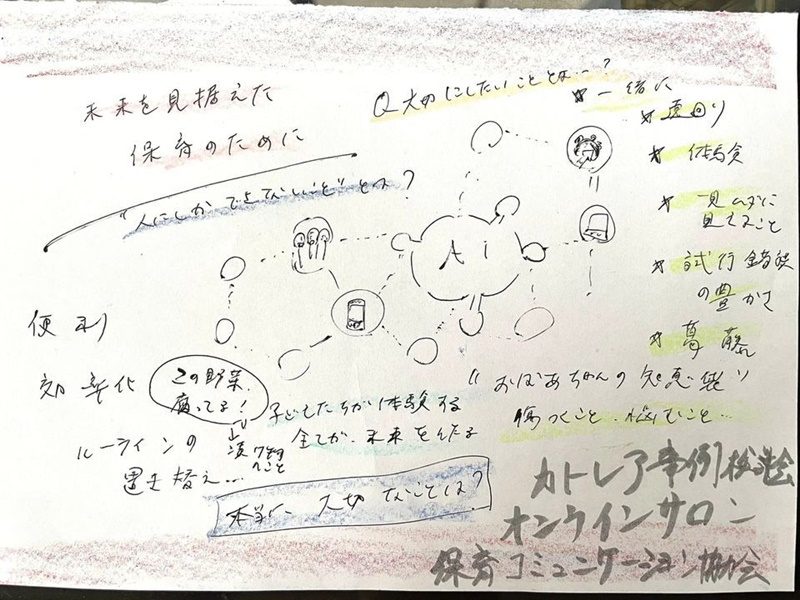 未来を見据えた
保育のために
"人にしかできないこと"とは?
Q 大切にしたいこととは…?
* 一緒に
* 遠回り
* 体験
* 一見ムダに
見えること
* 試行錯誤
の豊かさ
* 葛藤
Ai
便利
効率化
ルーティンの
置き替え…
この野菜
腐ってる!
子どもたちが体験する
全てが、未来を作る
"おばあちゃんの知恵袋"
傷つくこと、悩むこと…
本当に大切なことは?
カトレア事例検討会
オンラインサロン
保育コミュニケーション協会